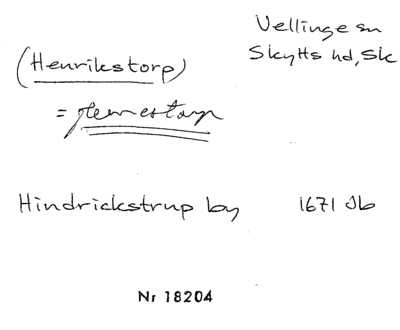 Vellinge sn
Skytts hd, Sk
(Henrikstorp)
= Hemestorp
Hindrickstrup by 1671 Jb
Nr 18204